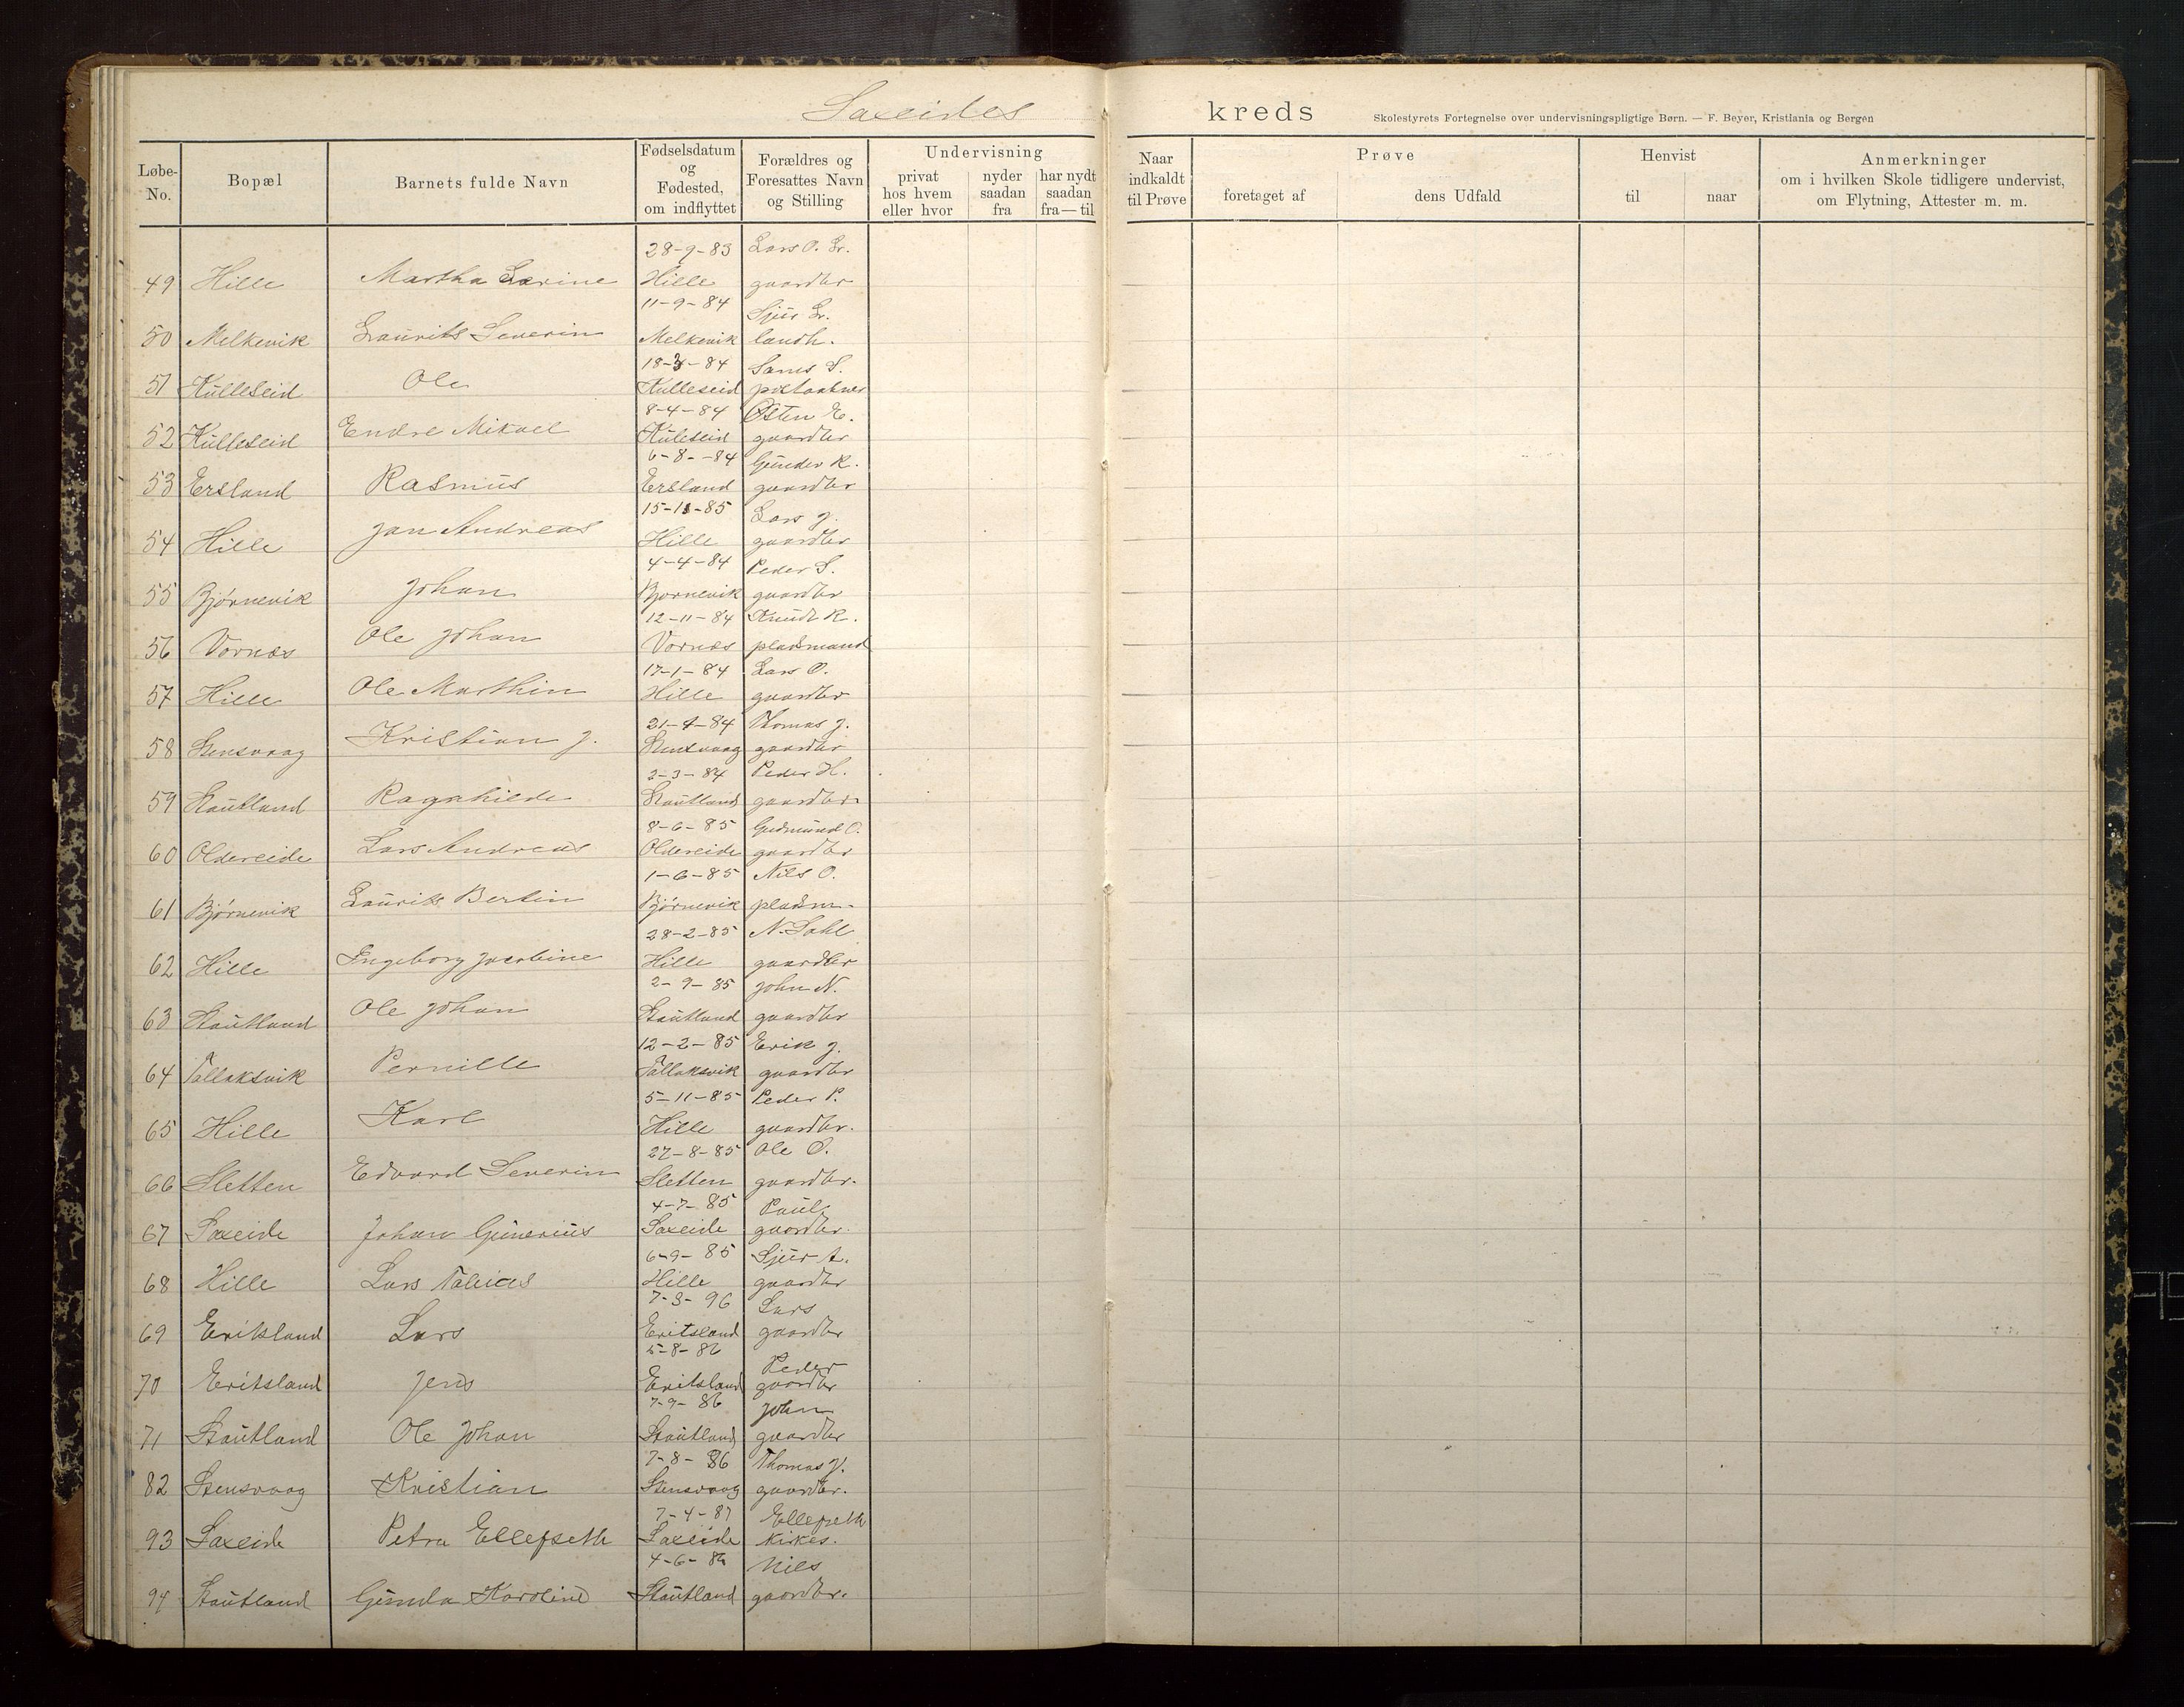 Saxeides kreds Skolestyrets Fortegnelse over undervisningspligtige Børn. — F. Beyer, Kristiania og Bergen
Løbe-No. Bopæl Barnets fulde Navn Fødselsdatum og Fødested, om indflyttet Forældres og Foresattes Navn og Stilling Undervisning privat hos hvem eller hvor nyder saadan fra har nydt saadan fra—til Naar indkaldt til Prøve Prøve foretaget af dens Udfald Henvist til naar Anmerkninger om i hvilken Skole tidligere undervist, om Flytning, Attester m. m.
28-9-83 Lars O. Sr.
49 Hille Martha Larine Hille gaardbr
11-9-84 Sjur Sr.
50 Melkevik Laurits Severin Melkevik landh.
18-3-84
51 Kulleseid Ole Kulleseid
8-4-84 Østen E.
52 Kulleseid Endre Mikael Kuleseid gaardbr
6-8--84 Gunder K.
53 Ersland Rasmus Ersland gaardbr
15-11-85 Lars J.
54 Hille Jan Andreas Hille gaardbr
4-4-84 Peder S.
55 Bjørnevik Johan Bjørnevik gaardbr
12-11-84 Knudt K.
56 Vornæs Ole Johan Vornæs pladsmand
17-1-84 Lars O.
57 Hille Ole Marthin Hille gaardbr
21-4-84 Thomas J.
58 Stensvaag Kristian J. Stensvaag gaardbr
2-3-84 Peder H.
59 Stautland Ragnhilde Stautland gaardbr
8-6-85 Gudmund O.
60 Oldereide Lars Andreas Oldereide gaardbr
1-6-85 Nils O.
61 Bjørnevik Laurits Bertin Bjørnevik pladsm-
28-2-85 N. Dahl
62 Hille Ingeborg Jacobine Hille gaardbr
2-9-85 John N.
63 Stautland Ole Johan Stautland gaardbr
12-2-85 Erik J.
64 Tallaksvik Pernille Tallaksvik gaardbr
5-11-85 Peder P.
65 Hille Karl Hille gaardbr.
27-8-85 Ole O.
66 Sletten Edvard Severin Sletten gaardbr.
4-7-85 Paul
67 Saxeide Johan Gunerius Saxeide gaardbr.
6-9-85 Sjur A.
68 Hille Lars Tobias Hille gaardbr
7-3-96 Lars
69 Eritsland Lars Eritsland gaardbr
5-8-86 Peder
70 Eritsland Jens Eritsland gaardbr
7-9-86 John
71 Stautland Ole Johan Stautland gaardbr
7-8-86 Thomas J.
82 Stensvaag Kristian Stensvaag gaardbr.
7-4-87 Ellefseth
93 Saxeide Petra Ellefseth Saxeide kirkes.
4-6-86 Nils
94 Stautland Gunda Karoline Stautland gaardbr.